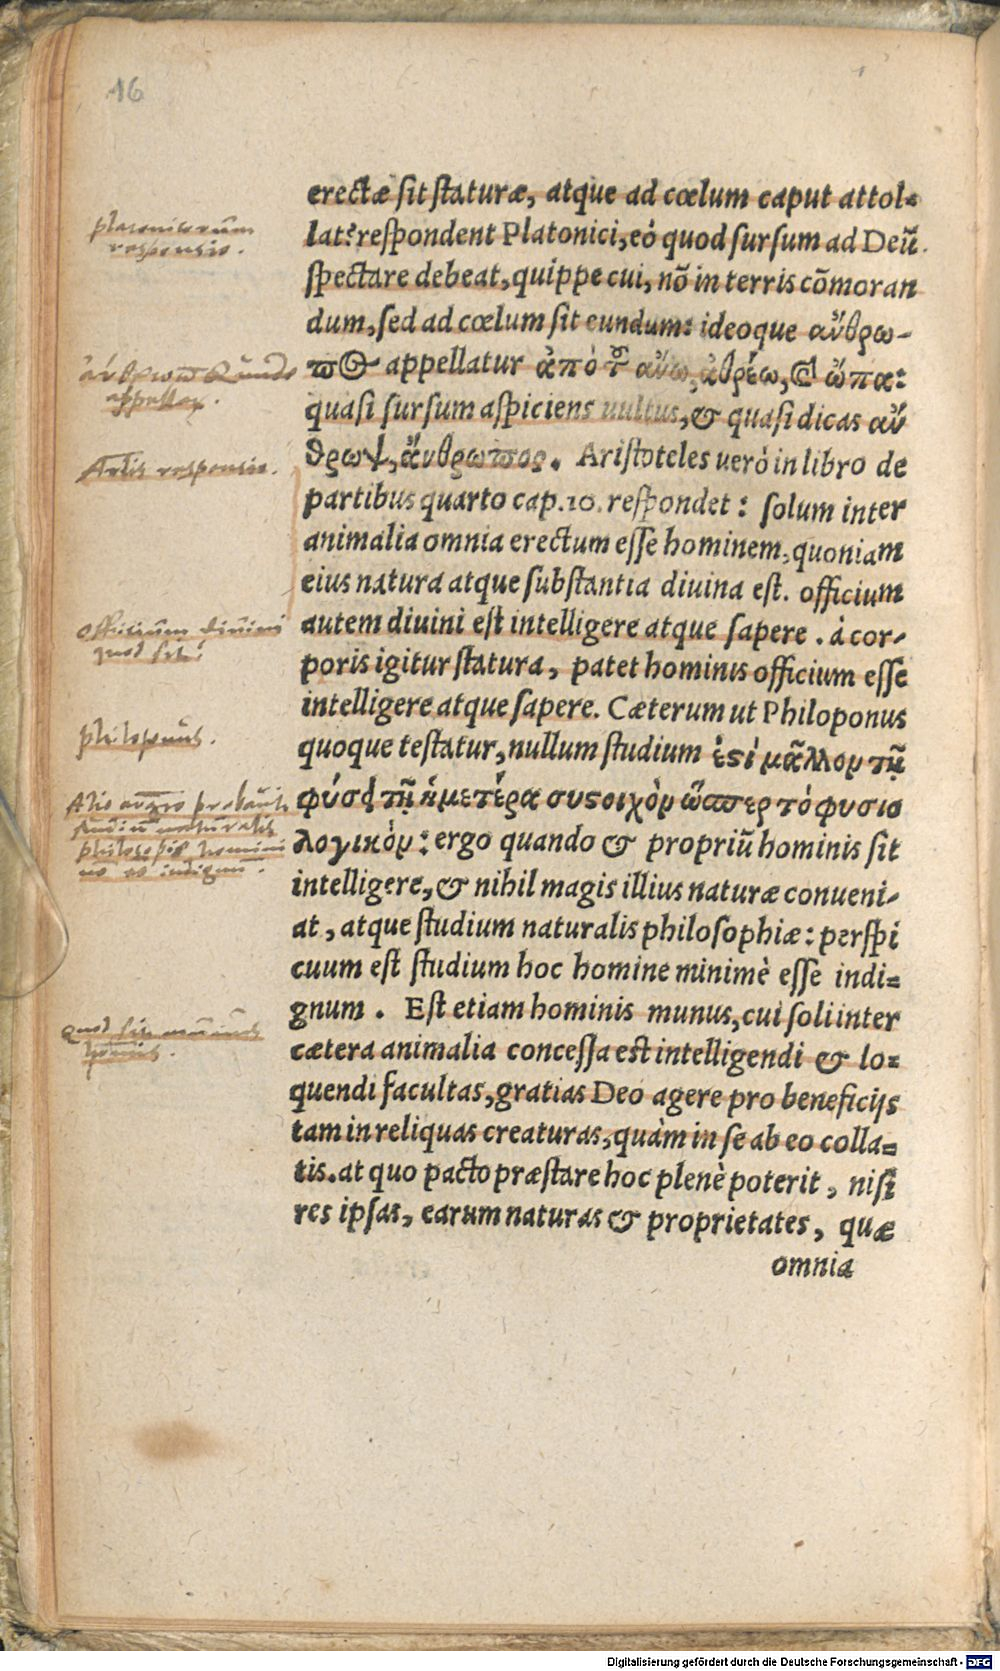 16
erectæ sit staturæ, atque ad cœlum caput attol=
lat? respondent Platonici, eò quod sursum ad Deũ
spectare debeat, quippe cui, nõ in terris cõmoran
dum, sed ad cœlum sit eundum: ideoque ἄνθρω-
πος appellatur ἀπὸ τοῦ ἄνω, ἀθρέω, & ὦπα:
quasi sursum aspiciens uultus, & quasi dicas ἄν
θρωψ, ἄνθρωπος. Aristoteles uerò in libro de
partibus quarto cap. 10. respondet: solum inter
animalia omnia erectum esse hominem, quoniam
eius natura atque substantia diuina est. officium
autem diuini est intelligere atque sapere. à cor-
poris igitur statura, patet hominis officium esse
intelligere atque sapere. Cæterum ut Philoponus
quoque testatur, nullum studium ἐστὶ μᾶλλον τῇ
φύσει τῇ ἡμετέρᾳ συστοιχὸν ὥσπερ τὸ φυσιο
λογικὸν: ergo quando & propriũ hominis sit
intelligere, & nihil magis illius naturæ conueni-
at, atque studium naturalis philosophiæ: perspi
cuum est studium hoc homine minimè esse indi=
gnum. Est etiam hominis munus, cui soli inter
cætera animalia concessa est intelligendi & lo=
quendi facultas, gratias Deo agere pro beneficijs
tam in reliquas creaturas, quàm in se ab eo colla=
tis. at quo pacto præstare hoc plenè poterit, nisi
res ipsas, earum naturas & proprietates, quæ
omnia
platonicorum
responsio.
Arlis responsio.
officium diuini
quod sit
philoponus.
Digitalisierung gefördert durch die Deutsche Forschungsgemeinschaft - DFG